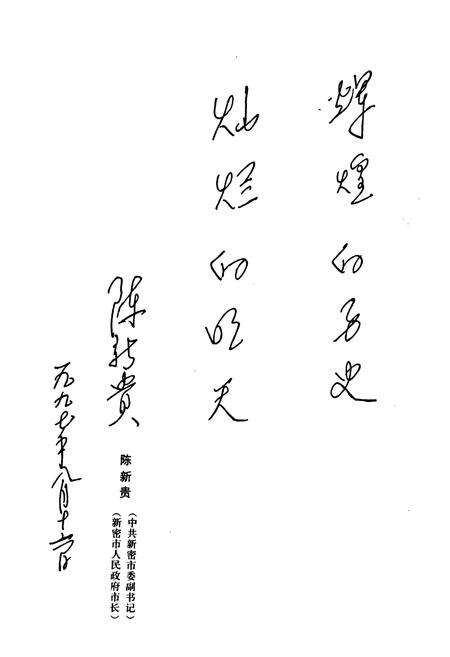 辉煌的历史
灿烂的明天
陈新贵
一九九七年八月十六日
陈新贵
（中共新密市委副书记）
（新密市人民政府市长）